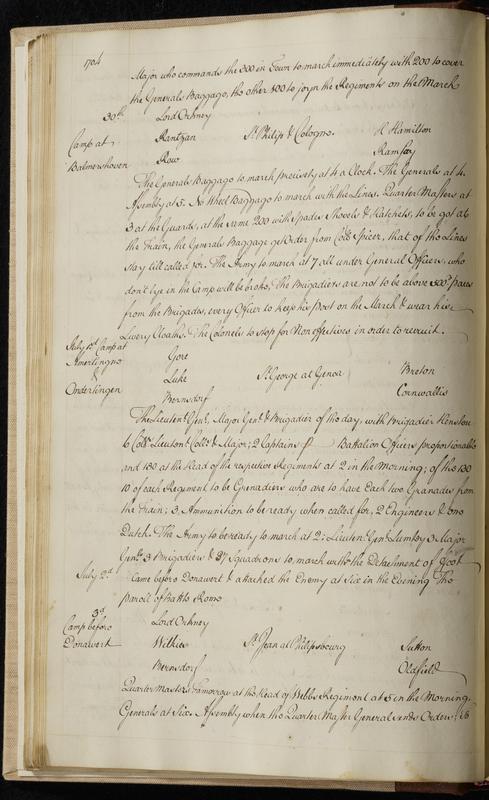 1704
Major who commands the 300 in Town to march immediately with 200 to cover
the Generals Baggage, the other 100 to joyn the Regiments on the March
30th Lord Orkney
Camp at Rantzau St Philip & Cologne. H Hamilton
Balmershoven Row Ramsay
The Generals Baggage to march precisely at 4 a Clock. The Generals at 4.
Assembly at 5. No Wheel Baggage to march with the Lines. Quarter Masters at
3 at the Guards, at the same 200 with Spades Shovels & Hatchets, to be got at
the Train, the Generals Baggage get Order from Coll Spicer, that of the Lines
stay till called for. The Army to march at 7 all under General Officers, who
don't lye in the Camp will be broke, The Brigadiers are not to be above 100 paces
from the Brigades, every Officer to keep his Post on the March & wear his
Livery Cloaths. The Colonels to stop for Non effectives in order to recruit.
July 1st Camp at Gore
Amerdingno Luke St George at Genoa Breton
& Onderlingen Bernsdorf Cornwallis
The Lieutent Genl, Major Genl & Brigadier of the day, with Brigadier
6 Colls Lieutent Colls & Major; 2 Captains P Battalion Officers proportionable
and 130 at the Head of the respective Regiments at 2 in the Morning; of the 130
10 of each Regiment to be Grenadiers who are to have Each two Granades from
the Train; 3 Ammunition to be ready when called for, 2 Engineers & one
Dutch. The Army to be ready to march at 2; Lieutent Genl Lumley 3 Major
Genls 3 Brigadiers & 27 Squadrons to march with the Detachment of Foot
July 2d Came before Donawert & attacked the Enemy at Six in the Evening The
Parole of Battle Rome
3d Lord Orkney
Camp before
Donawert Withers St Jean at Philipsbourg Sutton
Bernsdorf Oldfield
Quarter Masters Tomorrow at the Head of Webbs Regiment at 5 in the Morning.
Generals at Six. Assembly when the Quarter Master General sends Orders.